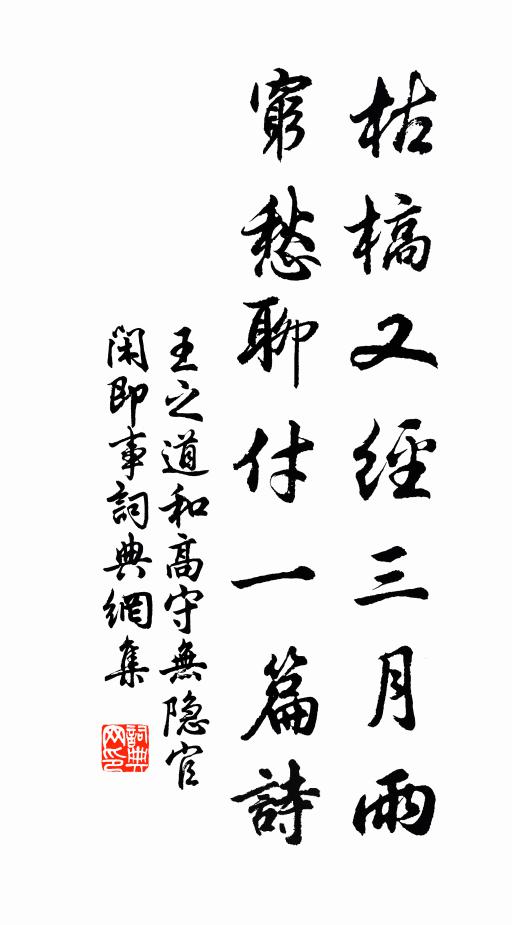 枯槁又經三月雨
窮愁聊付一篇詩
王之道和高守無隐官
閑即事詞典網集
詞典网印